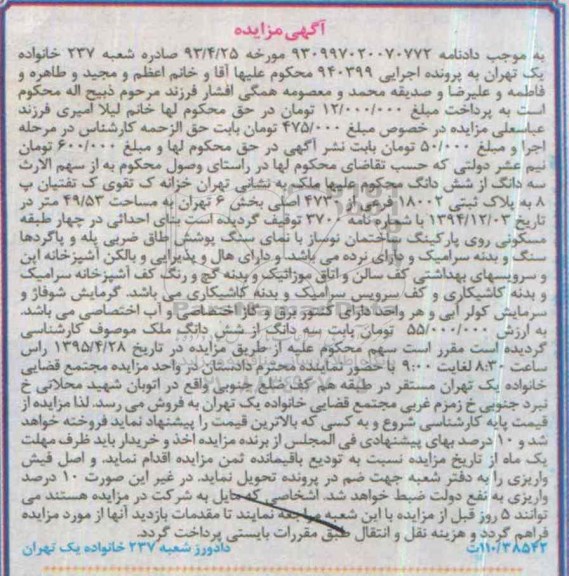 آگهی مزایده
به موجب دادنامه ۹۳۰۹۹۷۰۲۰۰۷۰۷۷۲ مورخه ۹۳/۴/۲۵ صادره شعبه ۲۳۷ خانواده
یک تهران به پرونده اجرایی ۹۴۰۳۹۹ محکوم علیها آقا و خانم اعظم و مجید و طاهره و
فاطمه و علیرضا و صدیقه محمد و معصومه همگی افشار فرزند مرحوم ذبیح اله محکوم
است به پرداخت مبلغ ۱۲/۰۰۰/۰۰۰ تومان در حق محکوم لها خانم لیلا امیری فرزند
عباسعلی مزایده در خصوص مبلغ ۴۷۵/۰۰۰ تومان بابت حق الزحمه کارشناس در مرحله
اجرا و مبلغ ۵۰/۰۰۰ تومان بابت نشر آگهی در حق محکوم لها و مبلغ ۶۰۰/۰۰۰ تومان
نیم عشر دولتی که حسب تقاضای محکوم لها در راستای وصول محکوم به از سهم الارث
سه دانگ از شش دانگ محکوم علیها ملک به نشانی تهران خزانه ک تقوی ک تفتیان پ
۸ به پلاک ثبتی ۱۸۰۰۲ فرعی از ۴۷۳۰ اصلی بخش ۶ تهران به مساحت ۴۹/۵۳ متر در
تاریخ ۱۳۹۴/۱۲/۰۳ با شماره نامه ۳۷۰۶ توقیف گردیده است بنای احداثی در چهار طبقه
مسکونی روی پارکینگ ساختمان نوساز با نمای سنگ پوشش طاق ضربی پله و پاگردها
سنگ و بدنه سرامیک و دارای نرده می باشد. و دارای هال و پذیرایی و بالکن آشپزخانه اپن
و سرویسهای بهداشتی کف سالن و اتاق موزائیک و بدنه گچ و رنگ کف آشپزخانه سرامیک
و بدنه کاشیکاری و کف سرویس سرامیک و بدنه کاشیکاری می باشد. گرمایش شوفاژ و
سرمایش کولر آبی و هر واحد دارای کنتور برق و گاز اختصاصی و آب اختصاصی می باشد.
به ارزش ۵۵/۰۰۰/۰۰۰ تومان بابت سه دانگ از شش دانگ ملک موصوف کارشناسی
گردیده است مقرر است سهم محکوم علیه از طریق مزایده در تاریخ ۱۳۹۵/۴/۲۸ راس
ساعت ۸:۳۰ لغایت ۹:۰۰ با حضور نماینده محترم دادستان در واحد مزایده مجتمع قضایی
خانواده یک تهران مستقر در طبقه هم کف ضلع جنوبی واقع در اتوبان شهید محلاتی خ
نبرد جنوبی خ زمزم غربی مجتمع قضایی خانواده یک تهران به فروش می رسد. لذا مزایده از
قیمت پایه کارشناسی شروع و به کسی که بالاترین قیمت را پیشنهاد نماید فروخته خواهد
شد و ۱۰ درصد بهای پیشنهادی فی المجلس از برنده مزایده اخذ و خریدار باید ظرف مهلت
یک ماه از تاریخ مزایده نسبت به تودیع باقیمانده ثمن مزایده اقدام نماید. و اصل فیش
واریزی را به دفتر شعبه جهت ضم در پرونده تحویل نماید. در غیر این صورت ۱۰ درصد
واریزی به نفع دولت ضبط خواهد شد. اشخاصی که مایل به شرکت در مزایده هستند می
توانند ۵ روز قبل از مزایده با این شعبه مراجعه نمایند تا مقدمات بازدید آنها از مورد مزایده
فراهم گردد و هزینه نقل و انتقال طبق مقررات بایستی پرداخت گردد.
۱۱۰/۳۸۵۴۲ت دادورز شعبه ۲۳۷ خانواده یک تهران